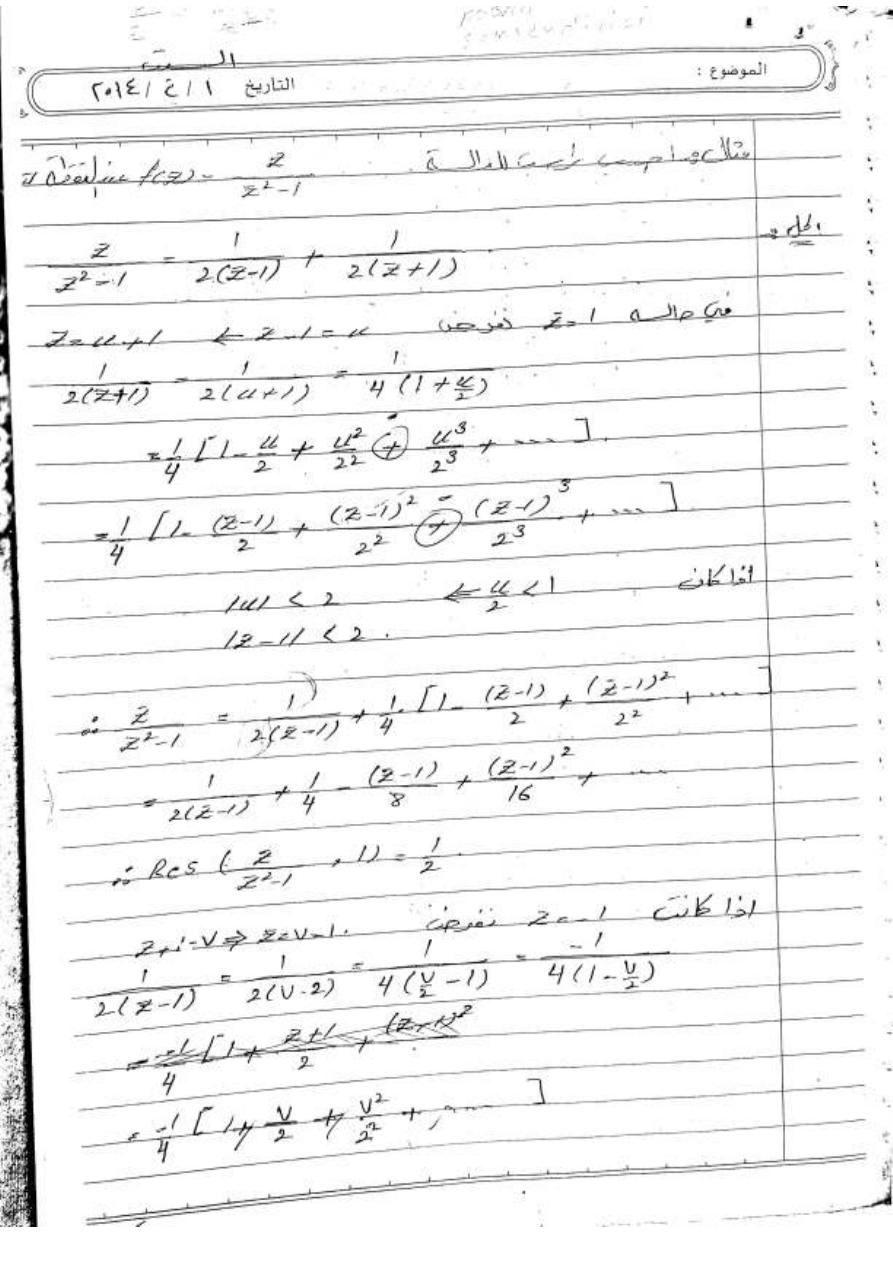 السبت
الموضوع :
التاريخ ١ / ع / ٢٠١٤
مثال احسب للدالة f(z) = z/(z²-1) عند
الحل :
z/(z²-1) = 1/(2(z-1)) + 1/(2(z+1))
في حالة z=1 نفرض z-1=u ← z=u+1
1/(2(z+1)) = 1/(2(u+1)) = 1/(4(1+u/2))
= 1/4 [1 - u/2 + u²/2² + u³/2³ + ....].
= 1/4 [1 - (z-1)/2 + (z-1)²/2² + (z-1)³/2³ + ...].
اذا كان u/2 < 1 ⇐ |u| < 2
|z-1| < 2.
∴ z/(z²-1) = 1/(2(z-1)) + 1/4 [1 - (z-1)/2 + (z-1)²/2² + ....]
= 1/(2(z-1)) + 1/4 - (z-1)/8 + (z-1)²/16 + ....
∴ Res (z/(z²-1), 1) = 1/2.
اذا كانت z=-1 نفرض z+1=v ⇒ z=v-1.
1/(2(z-1)) = 1/(2(v-2)) = 1/(4(v/2 -1)) = -1/(4(1-v/2))
= -1/4 [1 + (z+1)/2 + (z+1)²
= -1/4 [1 + v/2 + v²/2² + , .... ]